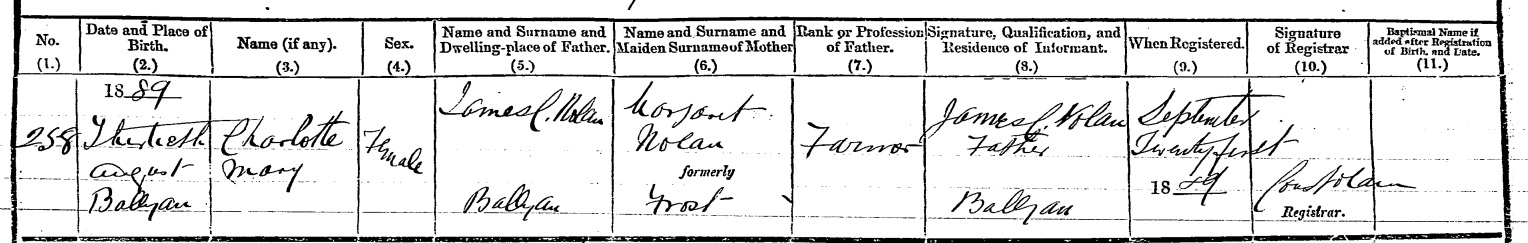 No. Date and Place of Birth. Name (if any). Sex. Name and Surname and Dwelling-place of Father. Name and Surname and Maiden Surname of Mother Rank or Profession of Father. Signature, Qualification, and Residence of Informant. When Registered. Signature of Registrar Baptismal Name if added after Registration of Birth, and Date.
(1.) (2.) (3.) (4.) (5.) (6.) (7.) (8.) (9.) (10.) (11.)
1889 James C. Nolan Margaret James C. Nolan September
258 Thirtieth Charlotte Female Nolan Farmer Father Twenty first
August Mary formerly 1889
Ballyan Ballyan Frost Ballyan Registrar.